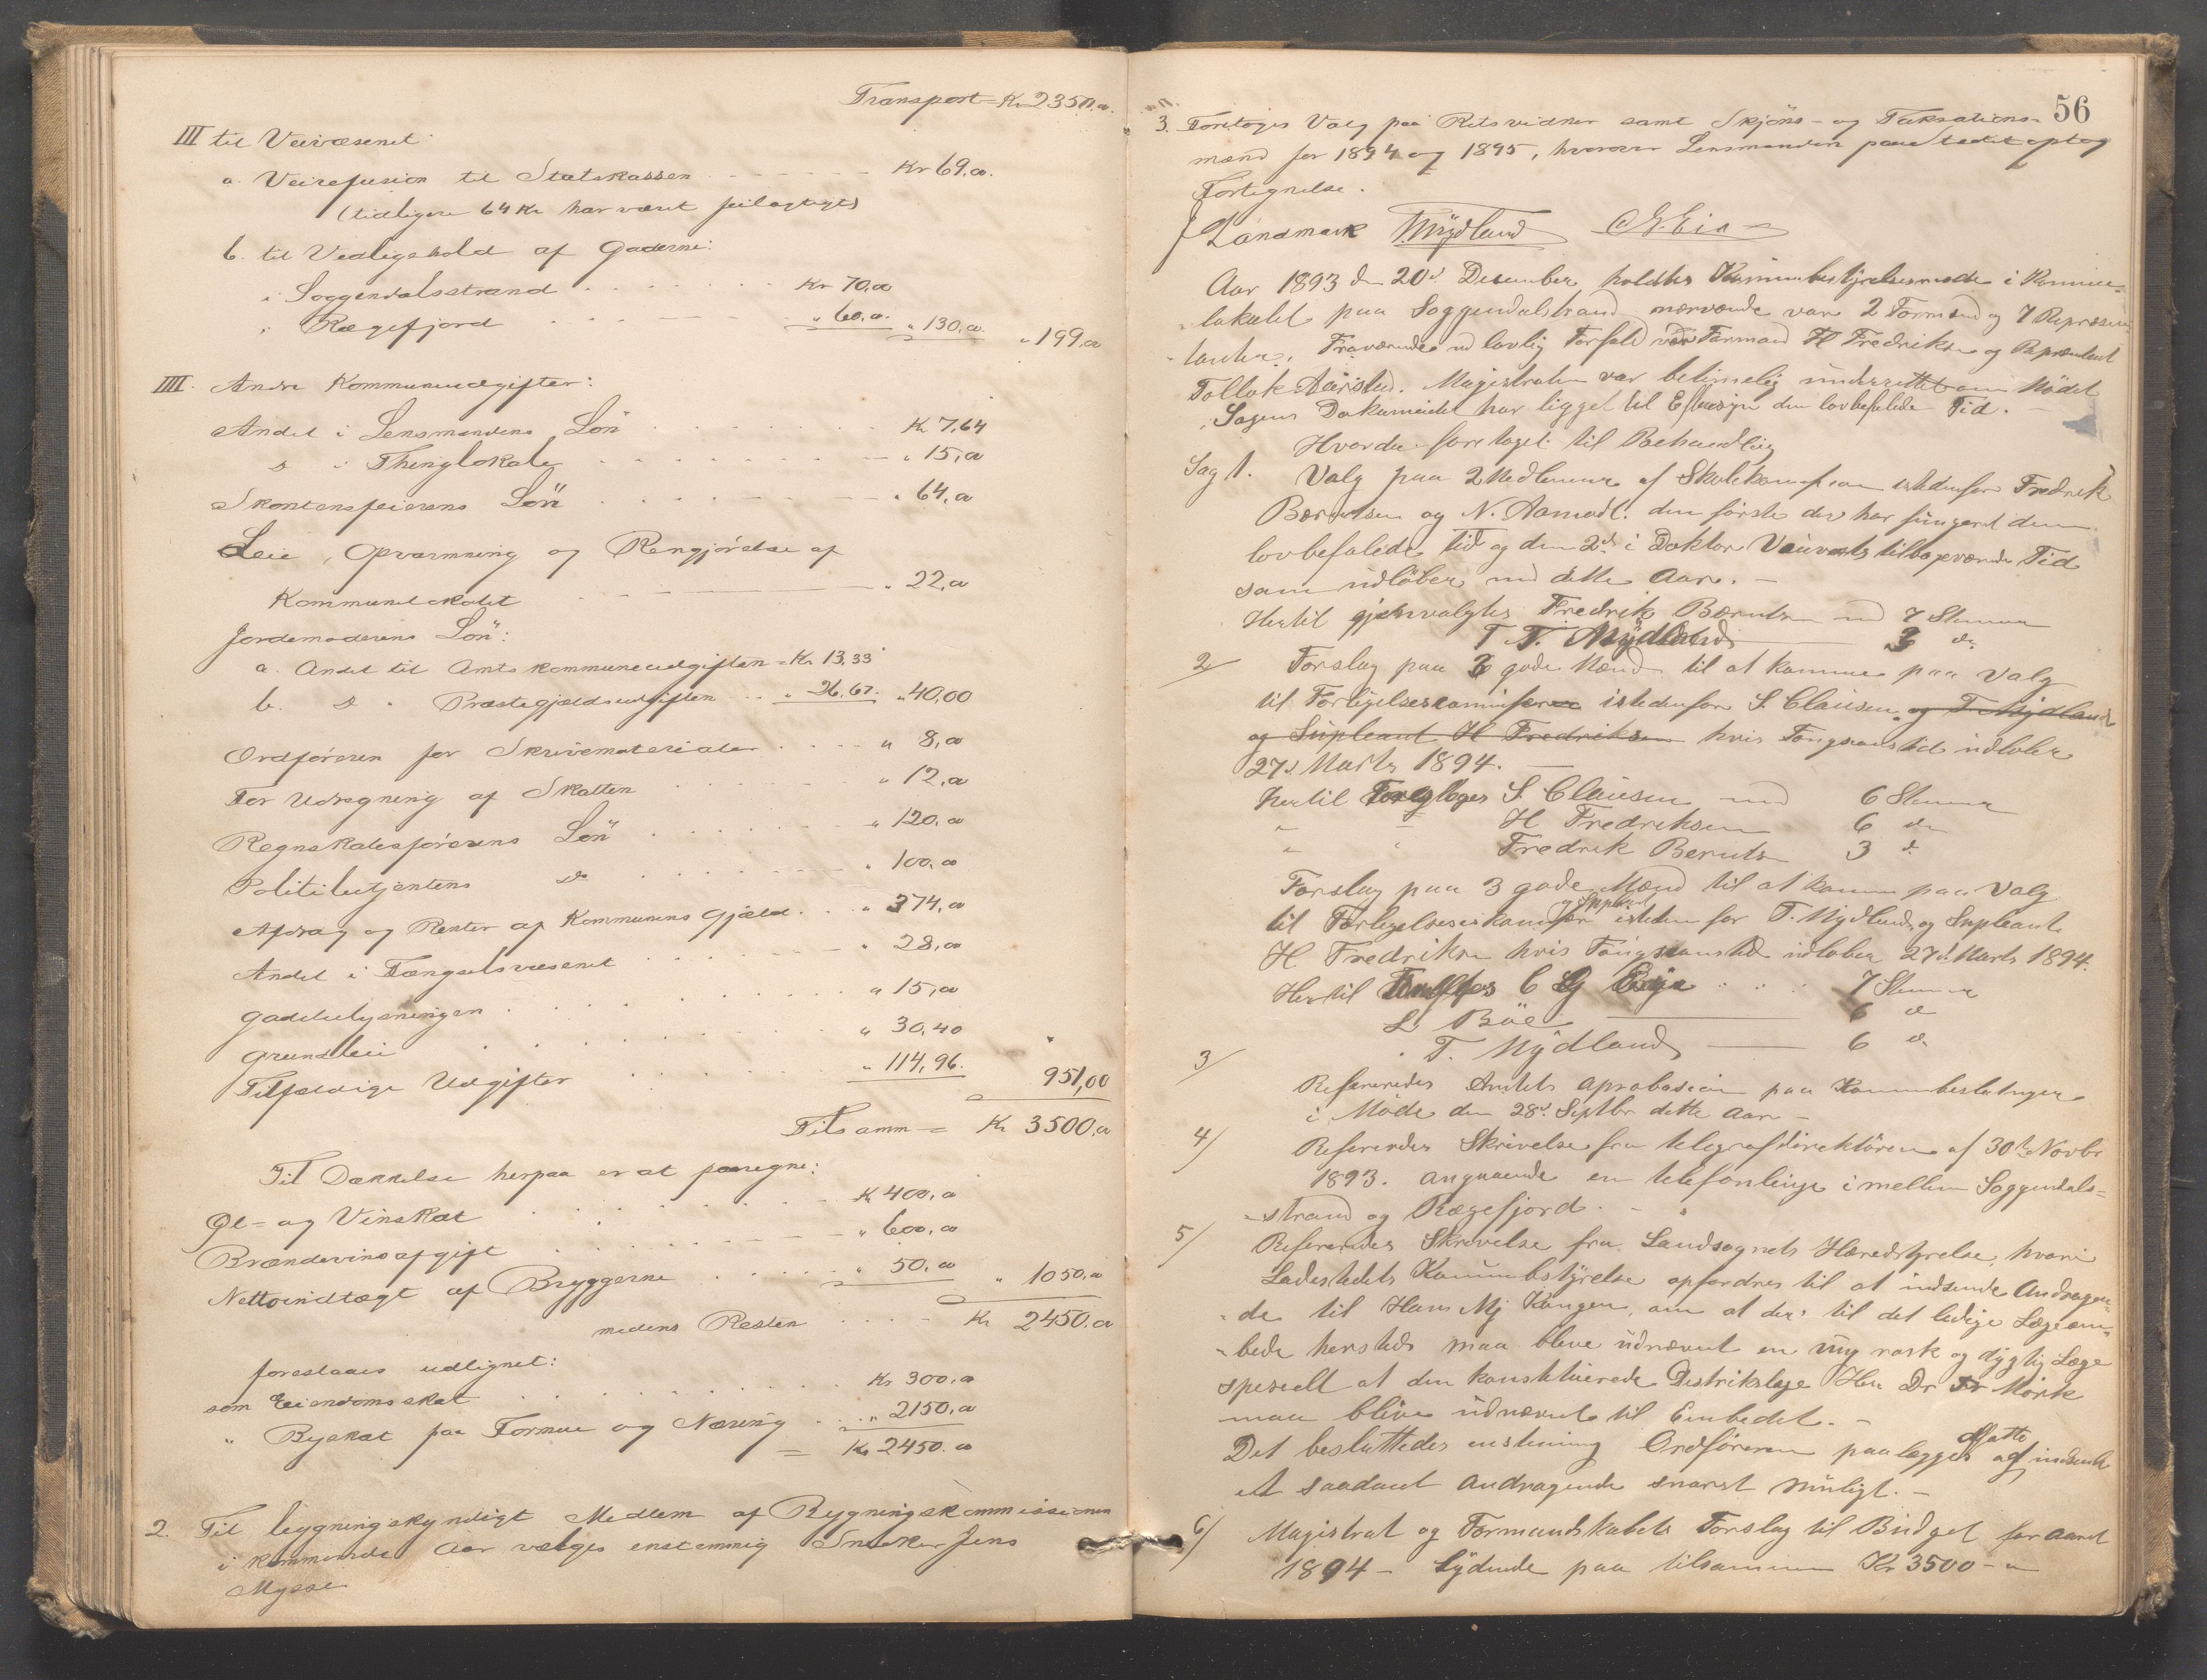 Transport = Kr 2350.00
III til Veivæsenet
a. Veirefusion til Statskassen - - - - - Kr 69.00.
(tidligere 64 Kr har været feilagtigt)
b. til Vedligehold af Gaderne:
i Soggendalsstrand . . . . . . . Kr 70.00
i Rægefjord . . - - - - „ 60.00. „ 130.00. „ 199.00
IIII. Andre Kommuneudgifter:
Andel i Lensmandens Løn . . . . . . . Kr 7,64
d i Thinglokale . . . . . . . . - - „ 15,00
Skorstensfeierens Løn . . . . . . - - - „ 64.00
Leie, Opvarmning og Rengjørelse af
Kommunelokalet - - - „ 22.00
Jordemoderens Løn:
a. Andel til Amtskommuneudgiften = Kr. 13,33
b. d „ Præstegjeldsudgiften . . „ 26,67. „ 40,00
Ordføreren for Skrivematerialer . . . . „ 8,00
For Udregning af Skatten . . . . . . „ 12,00
Regnskabsførerens Løn . . . . . . „ 120.00
Politibetjentens do . . . . . . - - „ 100.00
Afdrag og Renter af Kommunens Gjæld. . . „ 374,00
Andel i Fængselsvæsenet . . . . . . „ 28,00
Gadebelysningen . . . . . . . . „ 15,00
Grundleie . . . . . . . . „ 30,40
Tilfældige Udgifter . . . . . . „ 114,96. 951,00
Tilsamm = Kr 3500.00
Til Dækkelse herpaa er at paaregne:
Øl- og Vinskat . . . . . . . . Kr 400,00
Brændevinsafgift . . . . . . - - „ 600,00
Nettoindtægt af Bryggerne . . . . . „ 50.00 „ 1050.00
medens Resten . . . . Kr 2450.00
foreslaaes udlignet:
som Eiendomsskat . . . . . . . . . . Kr 300.00
„ Byskat paa Formue og Næring . . . „ 2150.00
= Kr 2450.00
2. Til bygningskyndigt Medlem af Bygningskommissionen
i kommende Aar vælges enstemmig Snekker Jens
Mysse
56
3. Foretoges Valg paa Retsvidner samt Skjøns- og Taksations-
mænd for 1894 og 1895, hvorover Lensmanden paa Stedet optog
Fortegnelse.
Landmark T. Mydland G. Eia
Aar 1893 den 20d Desember holdtes Kommunbestyrelsesmøde i Kommune-
lokalet paa Soggendalstrand nærvænde var 2 Formænd og 7 Repræsen-
tanter. Fraværende ved lovlig Forfald var Formand H Fredriksen og Repræsentant
Tollak Aarstad. Magistraten var betimelig underrettet om Mødet
Sagens Dokumenter har ligget til Eftersyn den lovbefalede Tid. -
Hvorder foretaget til Behandling
Sag 1. Valg paa 2 Medlemmer af Skolekommisionen istedenfor Fredrik
Berntsen og N. Aamodt. den første der har fungeret den
lovbefalede Tid og den 2d i Doktor tilbageværende Tid
som udløber med dette Aar. -
Hertil gjenvalgtes Fredrik Berntsen med 7 Stemmer
T. T. Mydland 3 do
2/ Forslag paa 3 gode Mænd til at komme paa Valg
til Forligelseskomisionen istedenfor S. Clausen og T. Mydland
og Supleant H Fredriksen hvis Fungsionstid udløber
27d Marts 1894. -
hertil Foreslages S. Clausen med 6 Stemmer
„ „ H Fredriksen 6 do
„ „ Fredrik Berntsen 3 do
Forslag paa 3 gode Mænd til at komme paa Valg
og Supleant
til Forligelseskomision istedenfor T. Mydland og Supleant
H. Fredriksen hvis Fungsionstid udløber 27d Marts 1894.
Hertil C G Eia . . . 7 Stemmer
L Böe 6 do
T. Mydland 6 do
3/ Refereredes Amtets Aprobasion paa Kommunbeslutninger
i Møde den 28d Septbr dette Aar -
4/ Refereredes Skrivelse fra telegrafdirektøren af 30te Novbr
1893. angaaende en telefonlinje imellem Soggendals-
strand og Rægefjord. -
5/ Refereredes Skrivelse fra Landsognets Heredstyrelse, hvori
Ladestedets Kommunbestyrelse opfordres til at indsende Andragen-
de til Hans Mj Kongen, om at der til det ledige Lægeem-
bede hersteds maa blive udnævnt en ung rask og dygtig Læge
spesielt at den konstituerede Distriktslæge Herr Dr Mørk
maa blive udnævnt til Embedet. -
Det besluttedes enstemig Ordføreren paalegges at afatte og indsende
et saadant Andragende snarest muligt. -
6/ Magistrat og Formandskabets Forslag til Budget for Aaret
1894 - lydende paa tilsammen Kr 3500 - 00